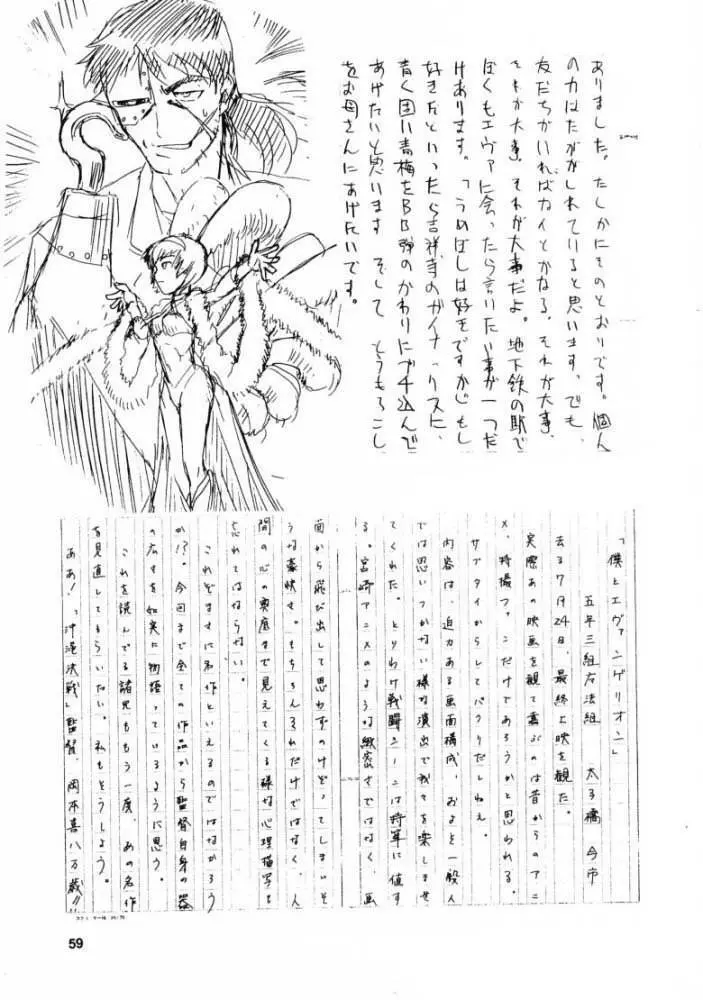 ありました。たしかにそのとおりです。個人
の力はたかがしれていると思います。でも、
友だちがいればカイとかなる。それが大事、
それが大事、それが大事だよ。地下鉄の駅で
ぼくもエヴァに会ったら言いたい事が一つだ
けあります。「うめぼしは好きですか」もし
好きだといったら吉祥寺のガイナックスに、
青く固い青梅をBB弾のかわりにブチ込んで
あげたいと思います。そして、とうもろこし
をお母さんにあげたいです。
「僕とエヴァンゲリオン」
五年三組 太子橋 今市
去る7月24日、最終上映を観た。
実際あの映画を観て喜ぶのは昔からのアニ
メ、特撮っこだけであろうかと思われる。
サブタイからしてパクリだしねぇ。
内容は、迫力ある画面構成、およそ一般人
では思いつかない様な演出で我々を楽しませ
てくれた。とりわけ戦闘シーンは特筆に値す
る。宮崎アニメのような緻密さではなく、画
面から飛び出して思わずのけぞってしまいそ
うな豪快さ。もちろんそれだけではなく、人
間の心の奥底まで見えてくる様な心理描写も
忘れてはならない。
これぞまさに名作といえるのではなかろう
か!?。今回まで全ての作品から監督自身の器
の広さを如実に物語っているように思う。
これを読んでる諸兄ももう一度、あの名作
を見直してもらいたい。私もそうしよう。
ああ!「沖縄決戦」監督、岡本喜八万歳!!
59